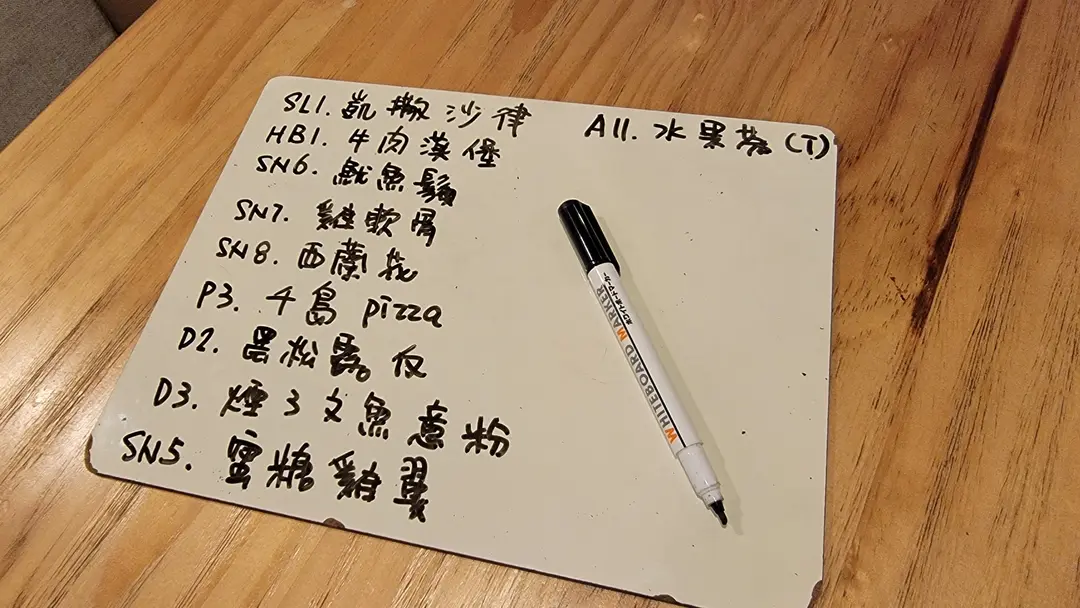 SL1. 凱撒沙律
HB1. 牛肉漢堡
SN6. 魷魚鬚
SN7. 雞軟骨
SN8. 西蘭花
P3. 千島 pizza
D2. 黑松露
D3. 煙3文魚意粉
SN5. 蜜糖雞翼
A11. 水果茶 (T)
WHITEBOARD MARKER